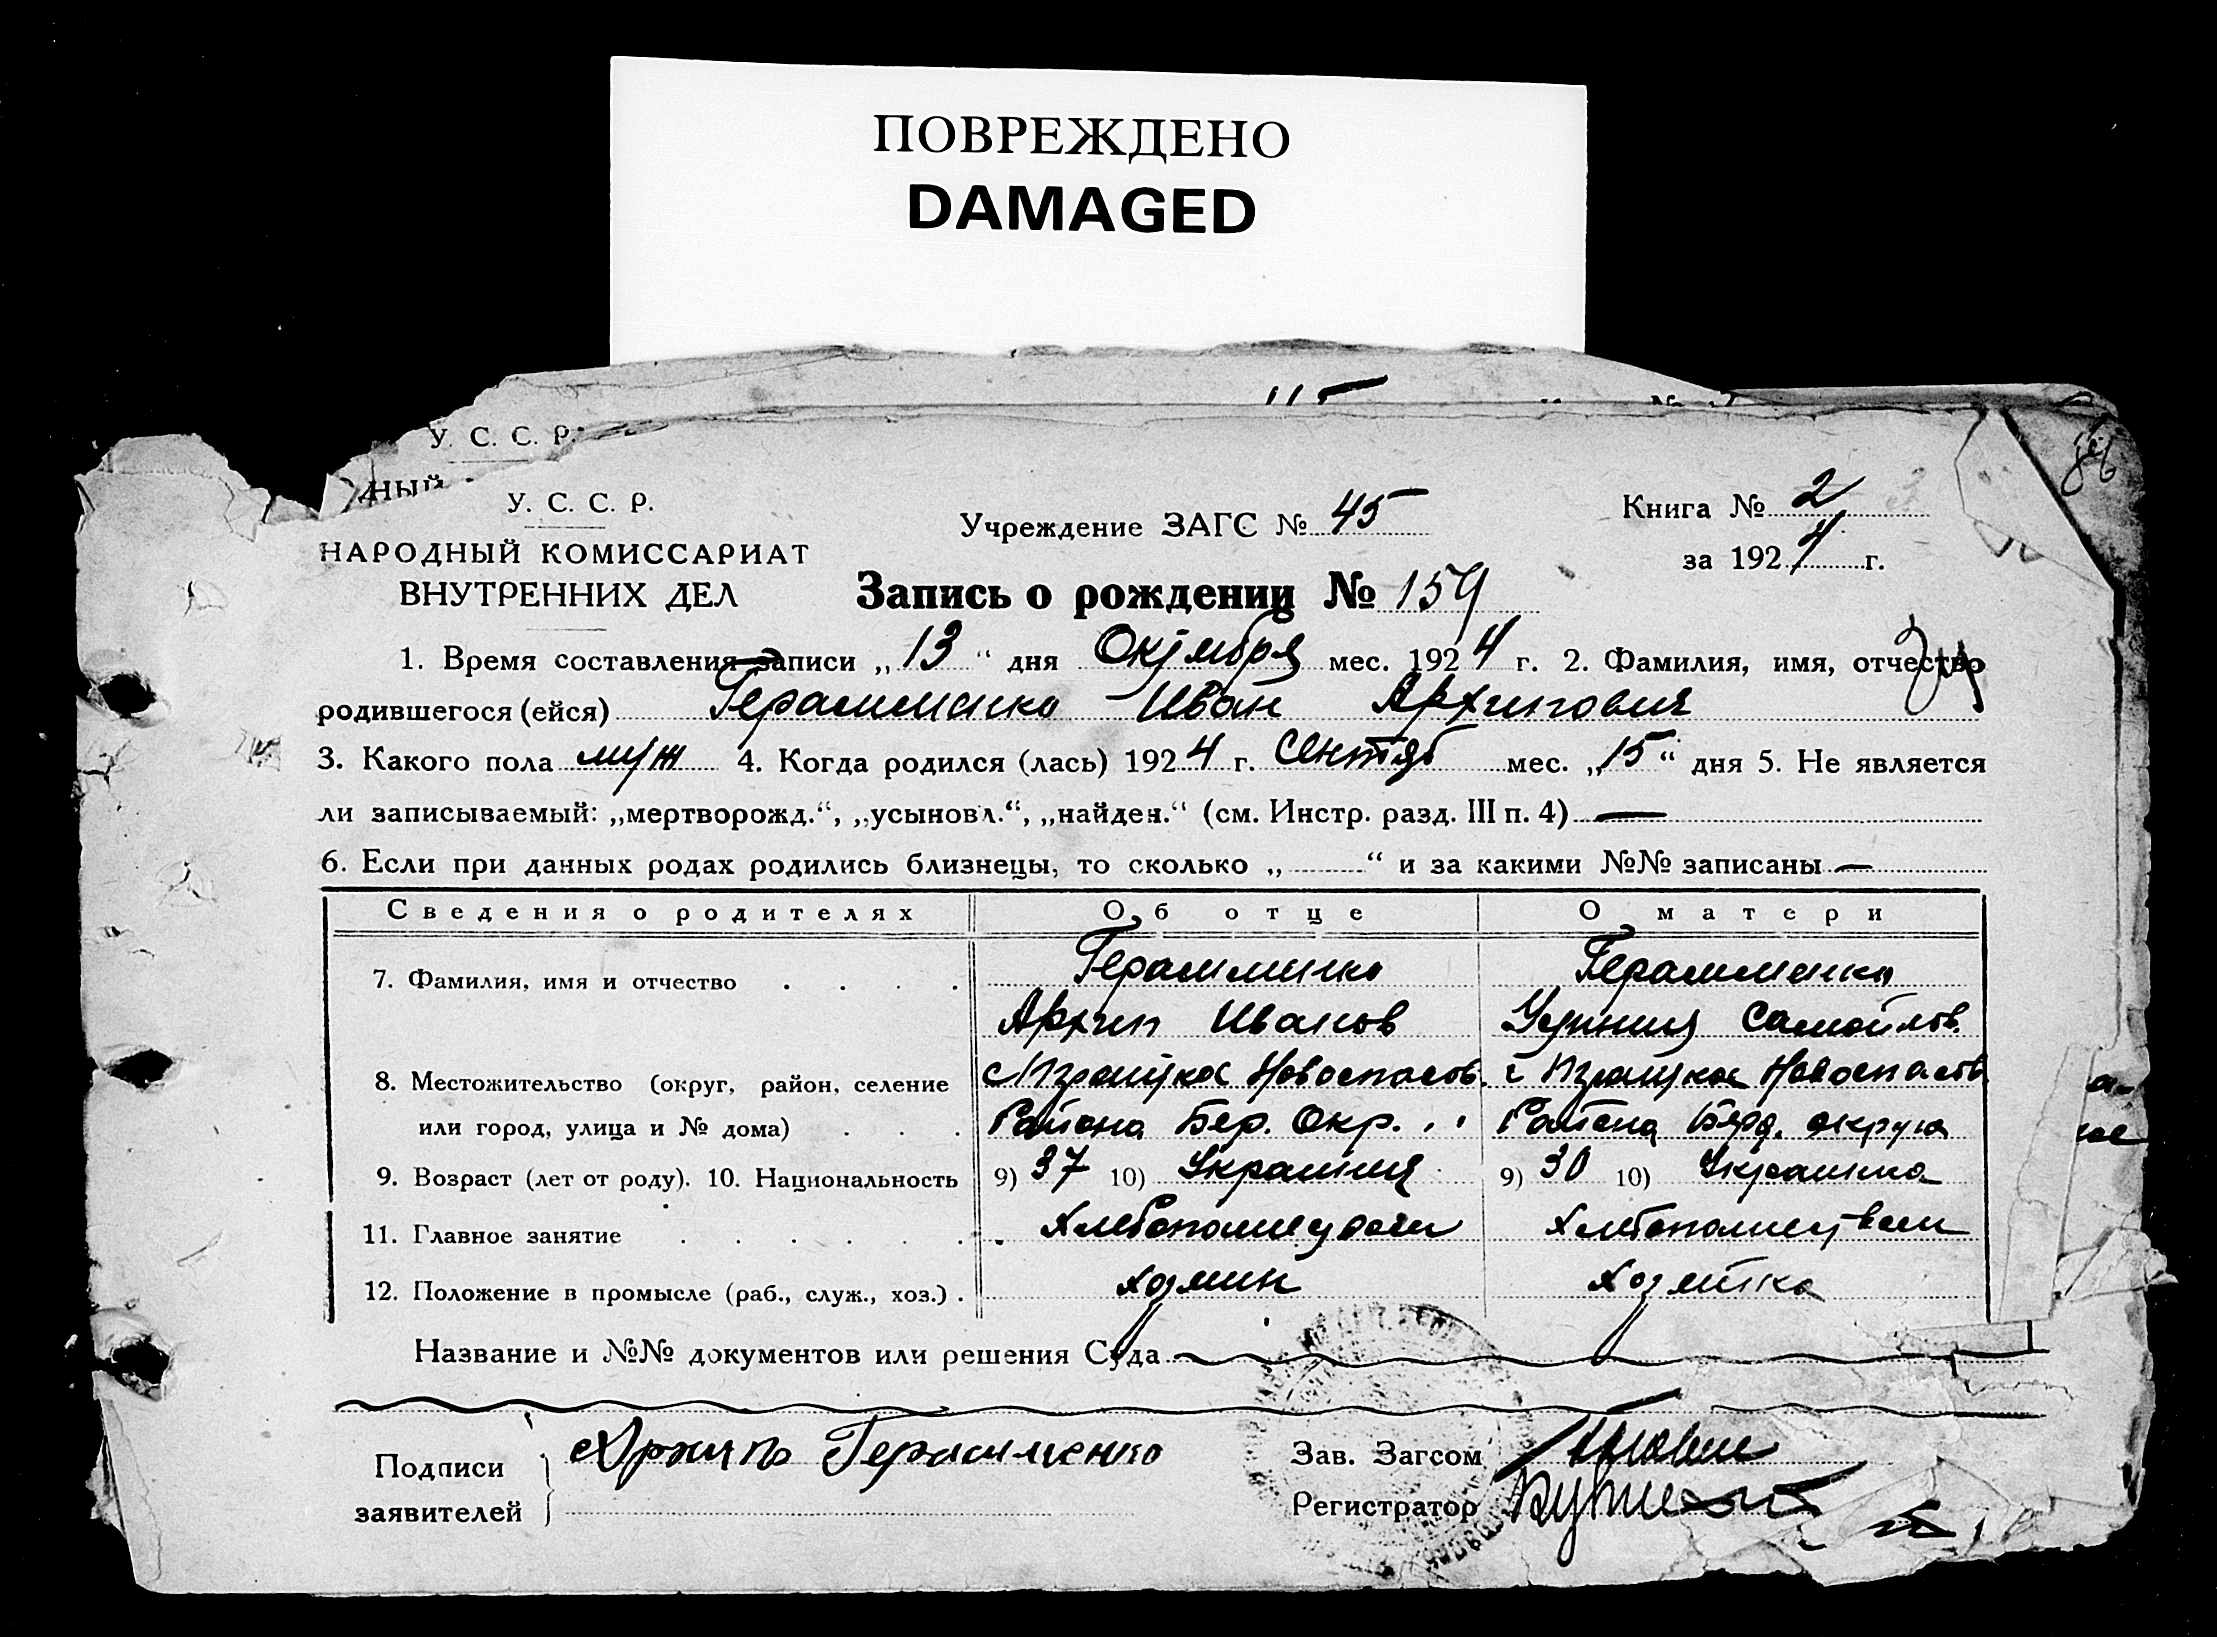 ПОВРЕЖДЕНО
DAMAGED
У. С. С. Р.
У. С. С. Р.
НАРОДНЫЙ КОМИССАРИАТ
ВНУТРЕННИХ ДЕЛ
Учреждение ЗАГС № 45
Книга № 2
за 1924 г.
Запись о рождении № 159
1. Время составления записи „13“ дня Октября мес. 1924 г. 2. Фамилия, имя, отчество
родившегося (ейся) Герасименко Иван Архипович
3. Какого пола муж 4. Когда родился (лась) 1924 г. Сентяб мес. „15“ дня 5. Не является
ли записываемый: „мертворожд.“, „усыновл.“, „найден.“ (см. Инстр. разд. III п. 4) —
6. Если при данных родах родились близнецы, то сколько „ “ и за какими №№ записаны —
Сведения о родителях Об отце О матери
7. Фамилия, имя и отчество Герасименко Герасименко
Архип Иванов Самойлов
8. Местожительство (округ, район, селение Новоспасов. Новоспасов
или город, улица и № дома) Района Бер. Окр. Района Берд. округа
9. Возраст (лет от роду). 10. Национальность 9) 37 10) Украинец 9) 30 10) Украинка
11. Главное занятие
12. Положение в промысле (раб., служ., хоз.) хозяин хозяйка
Название и №№ документов или решения Суда
Подписи
заявителей
Архипъ Герасименко
Зав. Загсом
Регистратор